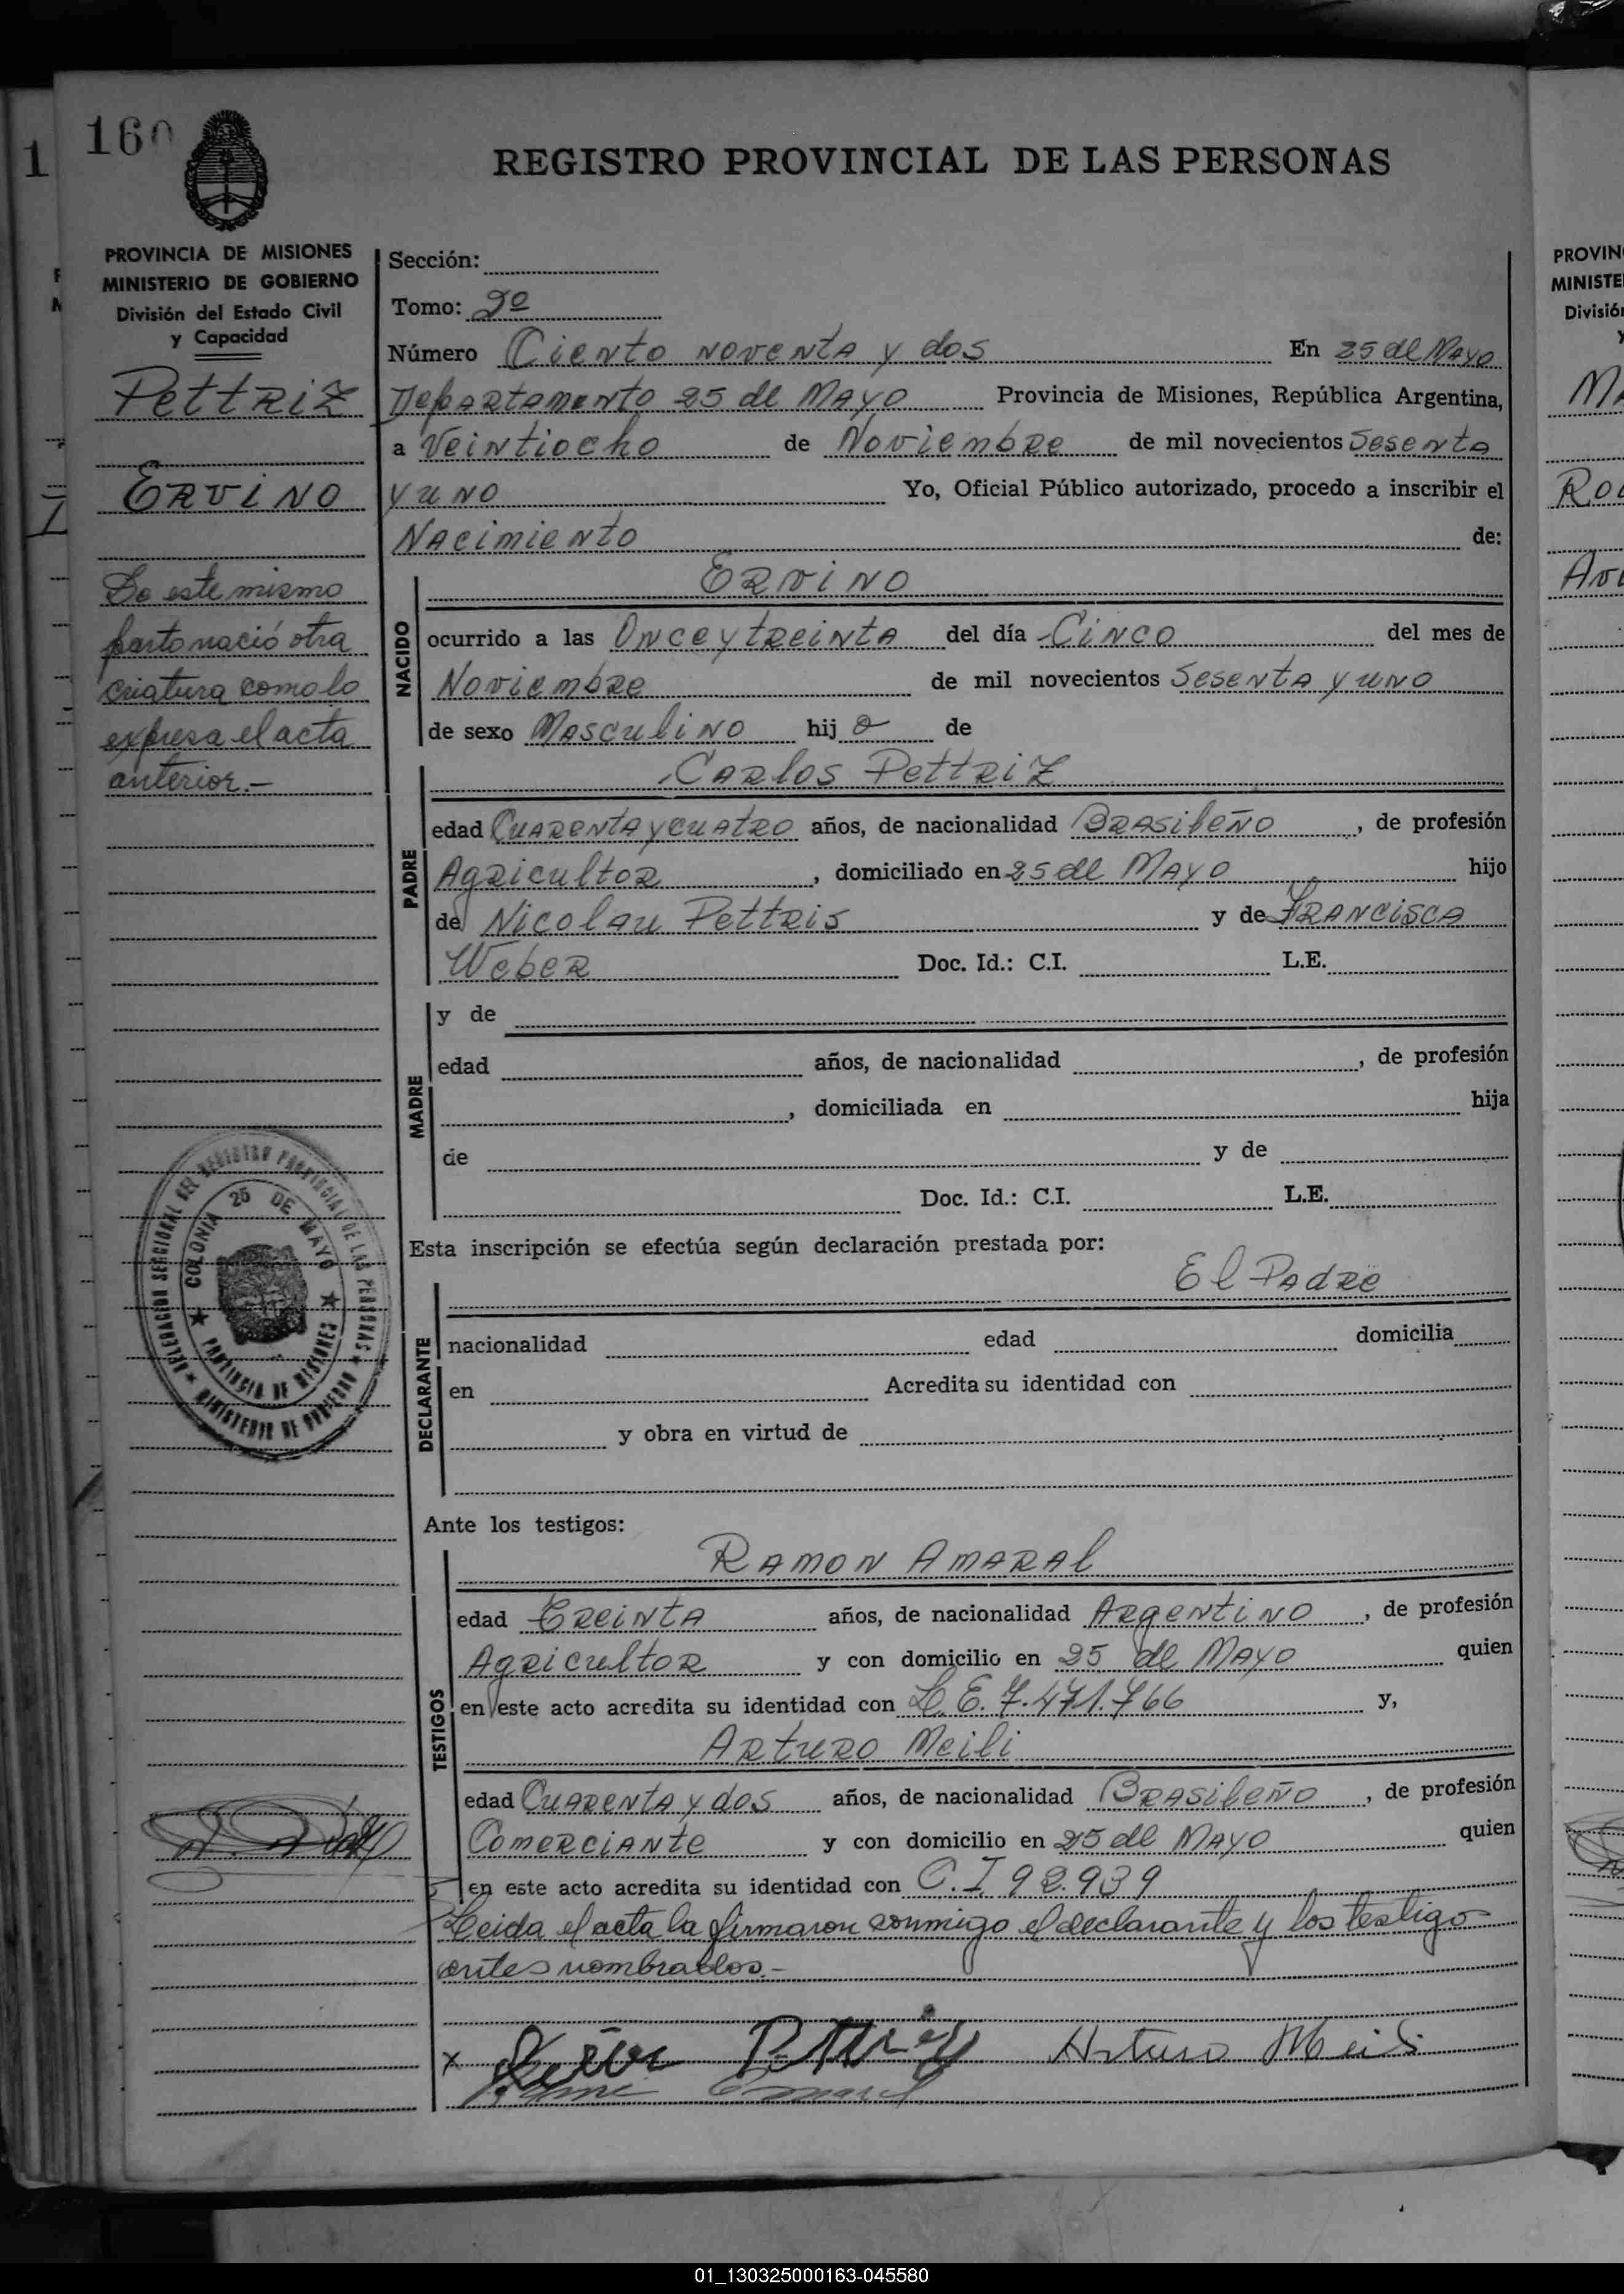 160
REGISTRO PROVINCIAL DE LAS PERSONAS
PROVINCIA DE MISIONES
MINISTERIO DE GOBIERNO
División del Estado Civil
y Capacidad
Pettriz
Ervino
De este mismo
parto nació otra
criatura como lo
expresa el acta
anterior.-
Sección:
Tomo: 2º
Número Ciento noventa y dos En 25 de Mayo
Departamento 25 de Mayo Provincia de Misiones, República Argentina,
a Veintiocho de Noviembre de mil novecientos Sesenta
y uno Yo, Oficial Público autorizado, procedo a inscribir el
Nacimiento de:
NACIDO
Ervino
ocurrido a las Once y treinta del día Cinco del mes de
Noviembre de mil novecientos Sesenta y uno
de sexo Masculino hij o de
PADRE
Carlos Pettriz
edad Cuarenta y cuatro años, de nacionalidad Brasileño, de profesión
Agricultor, domiciliado en 25 de Mayo hijo
de Nicolau Pettris y de Francisca
Weber Doc. Id.: C.I. L.E.
MADRE
y de
edad años, de nacionalidad , de profesión
, domiciliada en hija
de y de
Doc. Id.: C.I. L.E.
Esta inscripción se efectúa según declaración prestada por:
DECLARANTE
El Padre
nacionalidad edad domicilia
en Acredita su identidad con
y obra en virtud de
DELEGACION SECCIONAL DEL REGISTRO PROVINCIAL DE LAS PERSONAS
COLONIA 25 DE MAYO
PROVINCIA DE MISIONES
MINISTERIO DE GOBIERNO
Ante los testigos:
TESTIGOS
Ramon Amaral
edad Treinta años, de nacionalidad Argentino, de profesión
Agricultor y con domicilio en 25 de Mayo quien
en este acto acredita su identidad con L.E. 7.471.766 y,
Arturo Meili
edad Cuarenta y dos años, de nacionalidad Brasileño, de profesión
Comerciante y con domicilio en 25 de Mayo quien
en este acto acredita su identidad con C.I 92.939
Leida el acta la firmaron conmigo el declarante y los testigo
antes nombrados.-
x Arturo Meili
PROVIN
MINISTE
Divisió
01_130325000163-045580